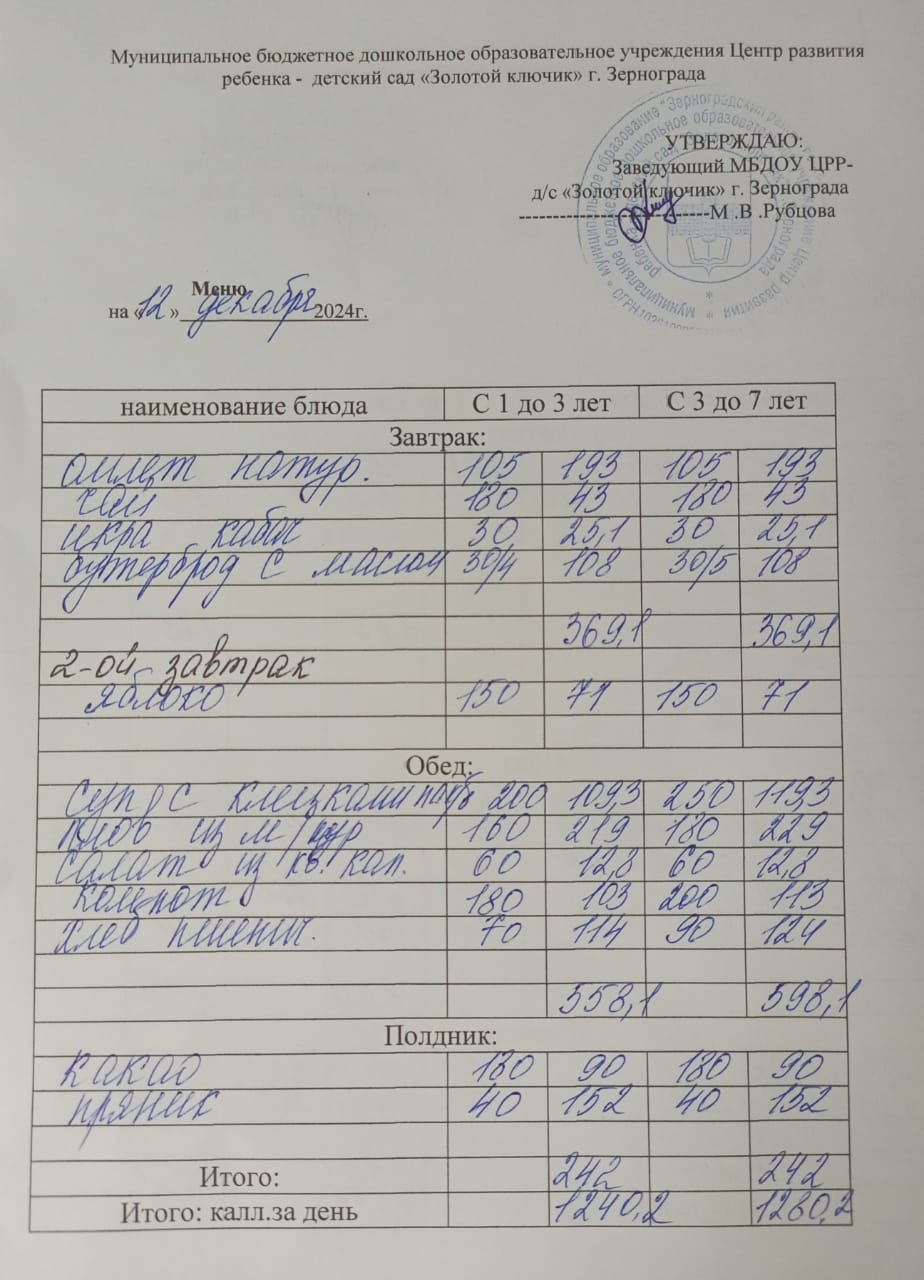 Муниципальное бюджетное дошкольное образовательное учреждения Центр развития
ребенка - детский сад «Золотой ключик» г. Зернограда
УТВЕРЖДАЮ:
Заведующий МБДОУ ЦРР-
д/с «Золотой ключик» г. Зернограда
----------------------------М .В .Рубцова
Меню
на «12» декабря 2024г.
наименование блюда С 1 до 3 лет С 3 до 7 лет
Завтрак:
омлет натур. 105 193 105 193
чай 180 43 180 43
икра кабач 30 25,1 30 25,1
бутерброд с маслом 30/4 108 30/5 108
369,1 369,1
2-ой завтрак
яблоко 150 71 150 71
Обед:
Суп с клецками 200 109,3 250 119,3
плов из м/кур 160 219 180 229
салат из кв. кап. 60 12,8 60 12,8
компот 180 103 200 113
хлеб пшенич. 70 114 90 124
558,1 598,1
Полдник:
какао 180 90 180 90
пряник 40 152 40 152
Итого: 242 242
Итого: калл.за день 1240,2 1280,2